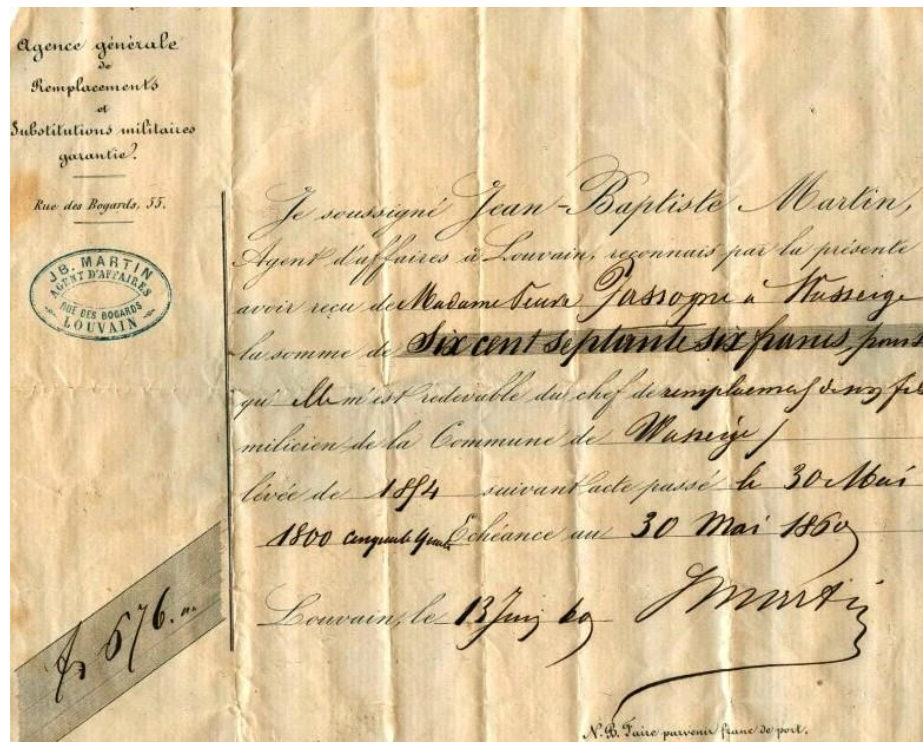 Agence générale
de
Remplacements
et
Substitutions militaires
garantie.
Rue des Bogards, 55.
JB. MARTIN
AGENT D'AFFAIRES
RUE DES BOGARDS
LOUVAIN
Je soussigné Jean-Baptiste Martin,
Agent d'affaires à Louvain, reconnais par la présente
avoir reçu de Madame Veuve à Wasseige
la somme de Six cent septante six francs, pour
qu'elle m'est redevable du chef de remplacement de son fils
milicien de la Commune de Wasseige
levée de 1854 suivant acte passé le 30 Mai
1800 cinquante quatre Echéance au 30 Mai 1860
Louvain, le 13 Juin 60 Martin
fs 676.
N.B. Faire parvenir franc de port.